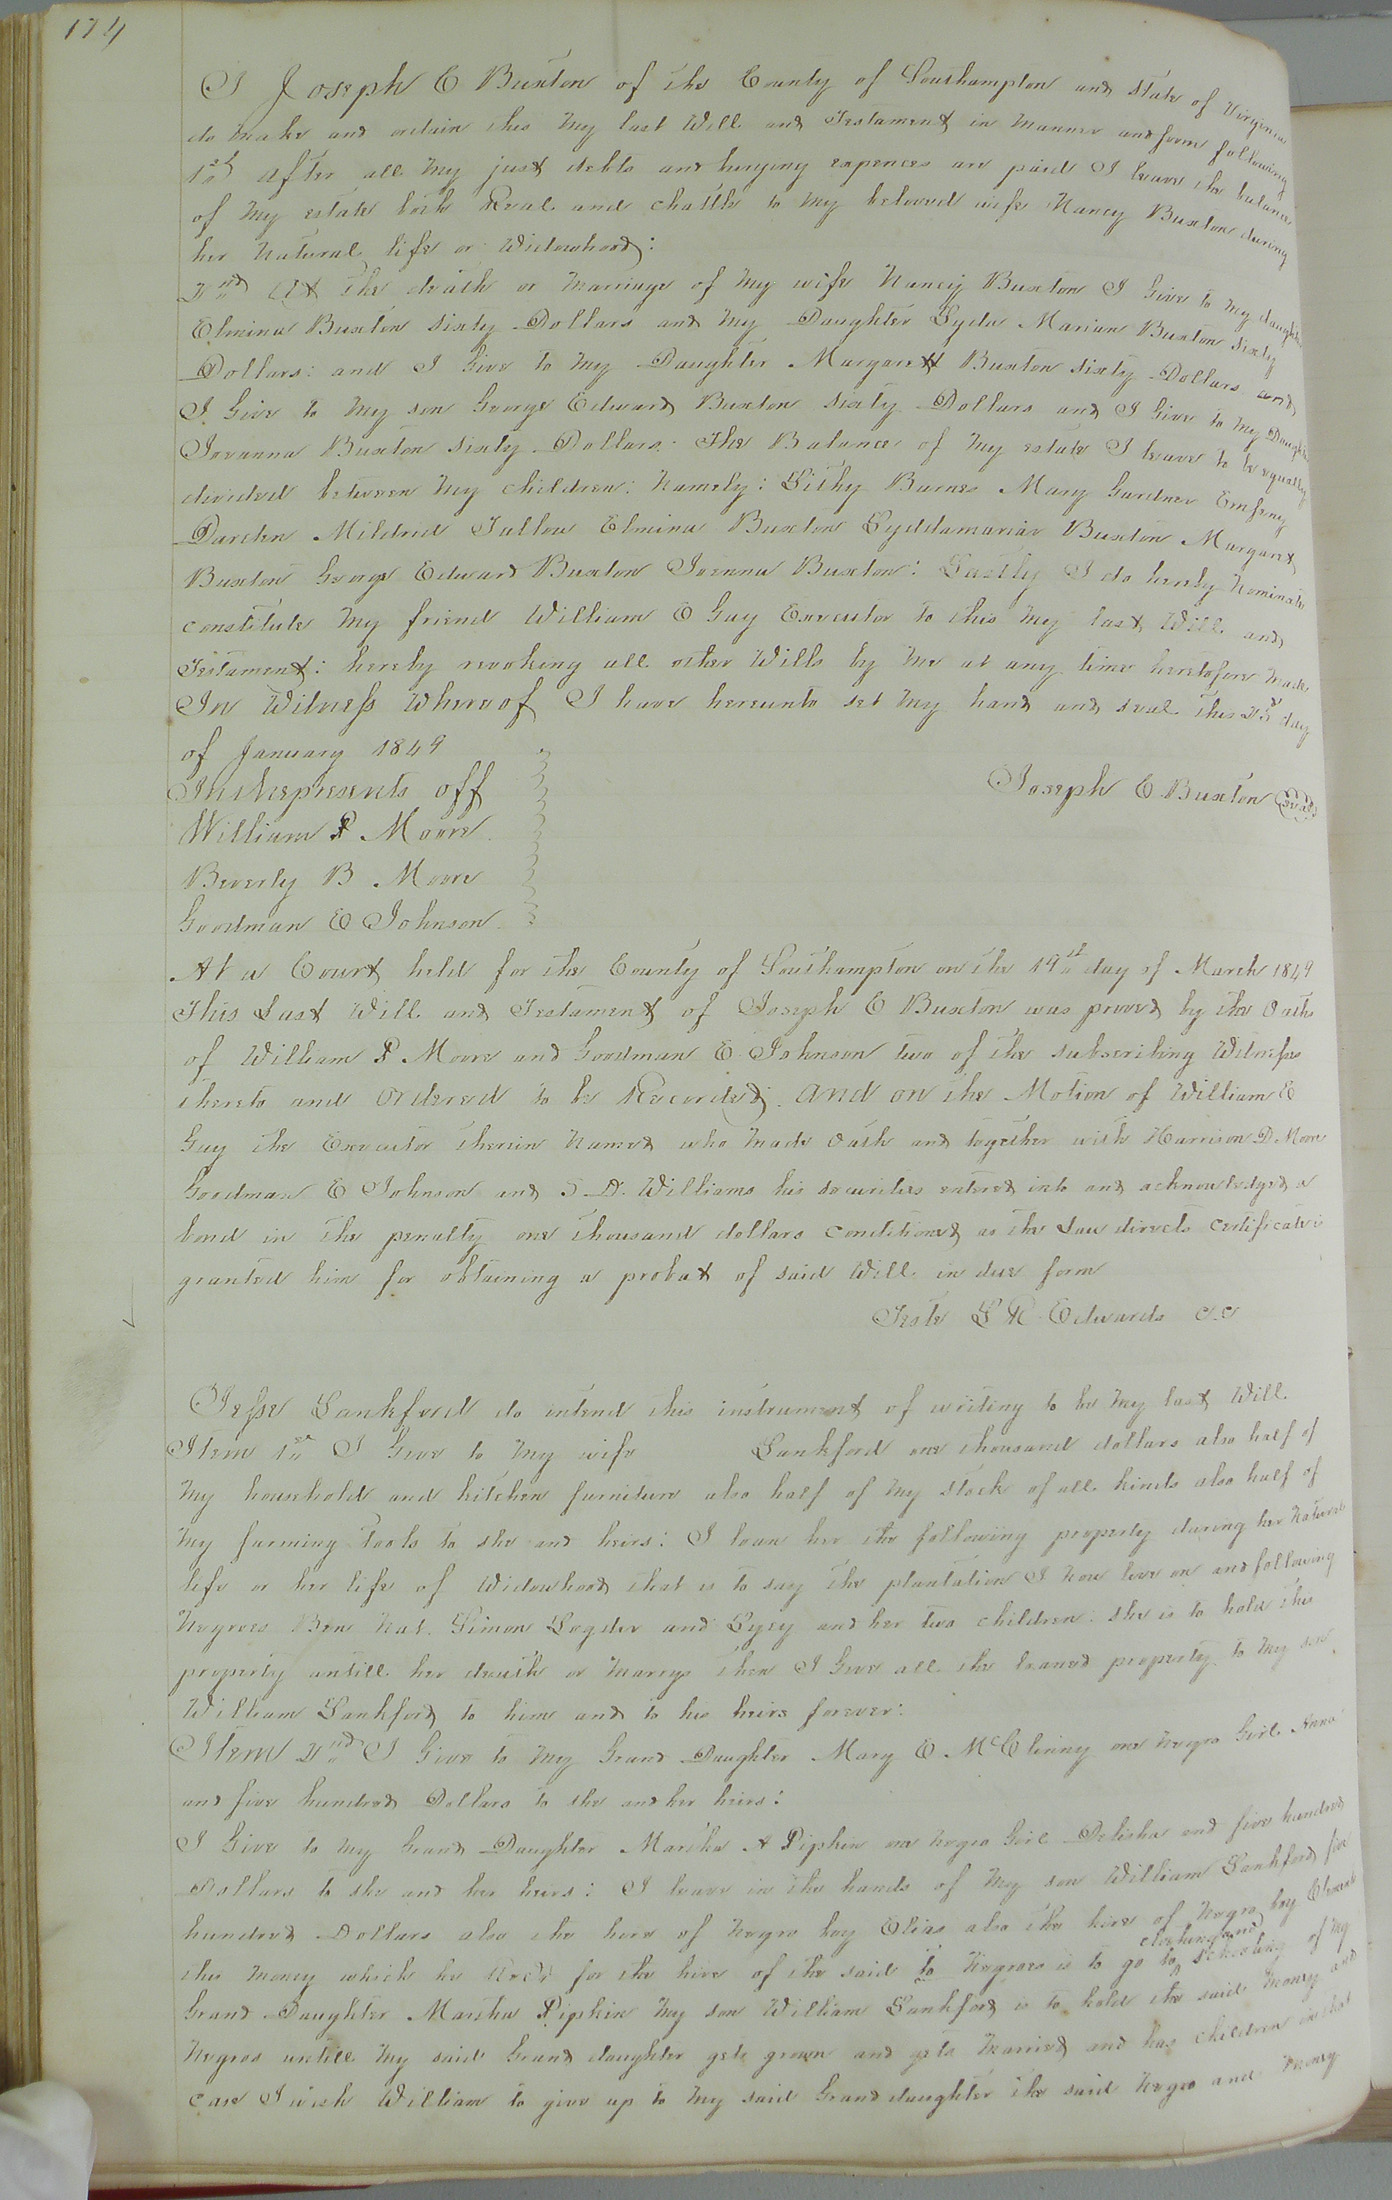 174
I Joseph E Buxton of the County of Southampton and State of Virginia
do make and ordain this my last Will and Testament in manner and form following
1st After all my just debts and burying expences are paid I leave the balance
of my estate both Real and chattle to my beloved wife Nancy Buxton during
her Natural life or Widowhood:
2nd At the death or Marriage of my wife Nancy Buxton I Give to my daughter
Elmina Buxton Sixty Dollars and my Daughter Lyda Marian Buxton Sixty
Dollars: and I Give to my Daughter Margarett Buxton Sixty Dollars and
I Give to my son George Edward Buxton Sixty Dollars and I Give to my Daughter
Jovanna Buxton Sixty Dollars. The Balance of my estate I leave to be equally
divided between my children: Namely: Sithy Barnes Mary Gardner Emfeny
Darden Mildred Tallow Elmina Buxton Lyddamariar Buxton Margaret
Buxton George Edward Buxton Joenna Buxton: Lastly I do hereby Nominate
constitute my friend William E Guy Executor to this my last Will and
Testament: hereby revoking all other Wills by me at any time heretofore made
In Witness Whereof I have hereunto set my hand and seal this 25 day
of January 1849
In the presents off
Joseph E Buxton Seal
William P Moore
Beverly B Moore
Goodman E Johnson
At a Court held for the County of Southampton on the 19th day of March 1849
This Last Will and Testament of Joseph E Buxton was proved by the Oaths
of William P Moore and Goodman E Johnson two of the subscribing Witnesses
thereto and Ordered to be Recorded. And on the Motion of William E
Guy the Executor therein Named who made Oath and together with Harrison D. Moore
Goodman E Johnson and J. D. Williams his securities entered into and acknowledged a
bond in the penalty one thousand dollars conditioned as the Law directs certificate is
granted him for obtaining a probat of said Will in due form
Teste L R Edwards C.C
I Jesse Lankford do intend this instrument of writing to be my last Will
Item 1st I Give to my wife Lankford one thousand dollars also half of
my household and kitchen furniture also half of my stock of all kinds also half of
my farming tools to she and heirs: I loan her the following property during her Natural
life or her life of Widowhood that is to say the plantation I now live on and following
Negroes Ben Nat. Simon Sogder and Lyzy and her two children: she is to hold this
property untill her death or Marryg then I Give all the loaned property to my son
William Lankford to him and to his heirs forever:
Item 2nd I Give to my Grand Daughter Mary E. McClenny one Negro Girl Anna
and five hundred Dollars to she and her heirs:
I Give to my Grand Daughter Martha A Pipkin one Negro Girl Delisha and five hundred
Dollars to she and her heirs: I leave in the hands of my son William Lankford five
hundred Dollars also the hire of Negro boy Elias also the hire of Negro boy
clothing and
this money which he for the hire of the said to Negroes is to go to schooling of my
Grand Daughter Martha Pipkin my son William Lankford is to hold the said money and
Negros untill my said Grand daughter gets grown and gets Married and has children in that
case I wish William to give up to my said Grand daughter the said Negro and Money